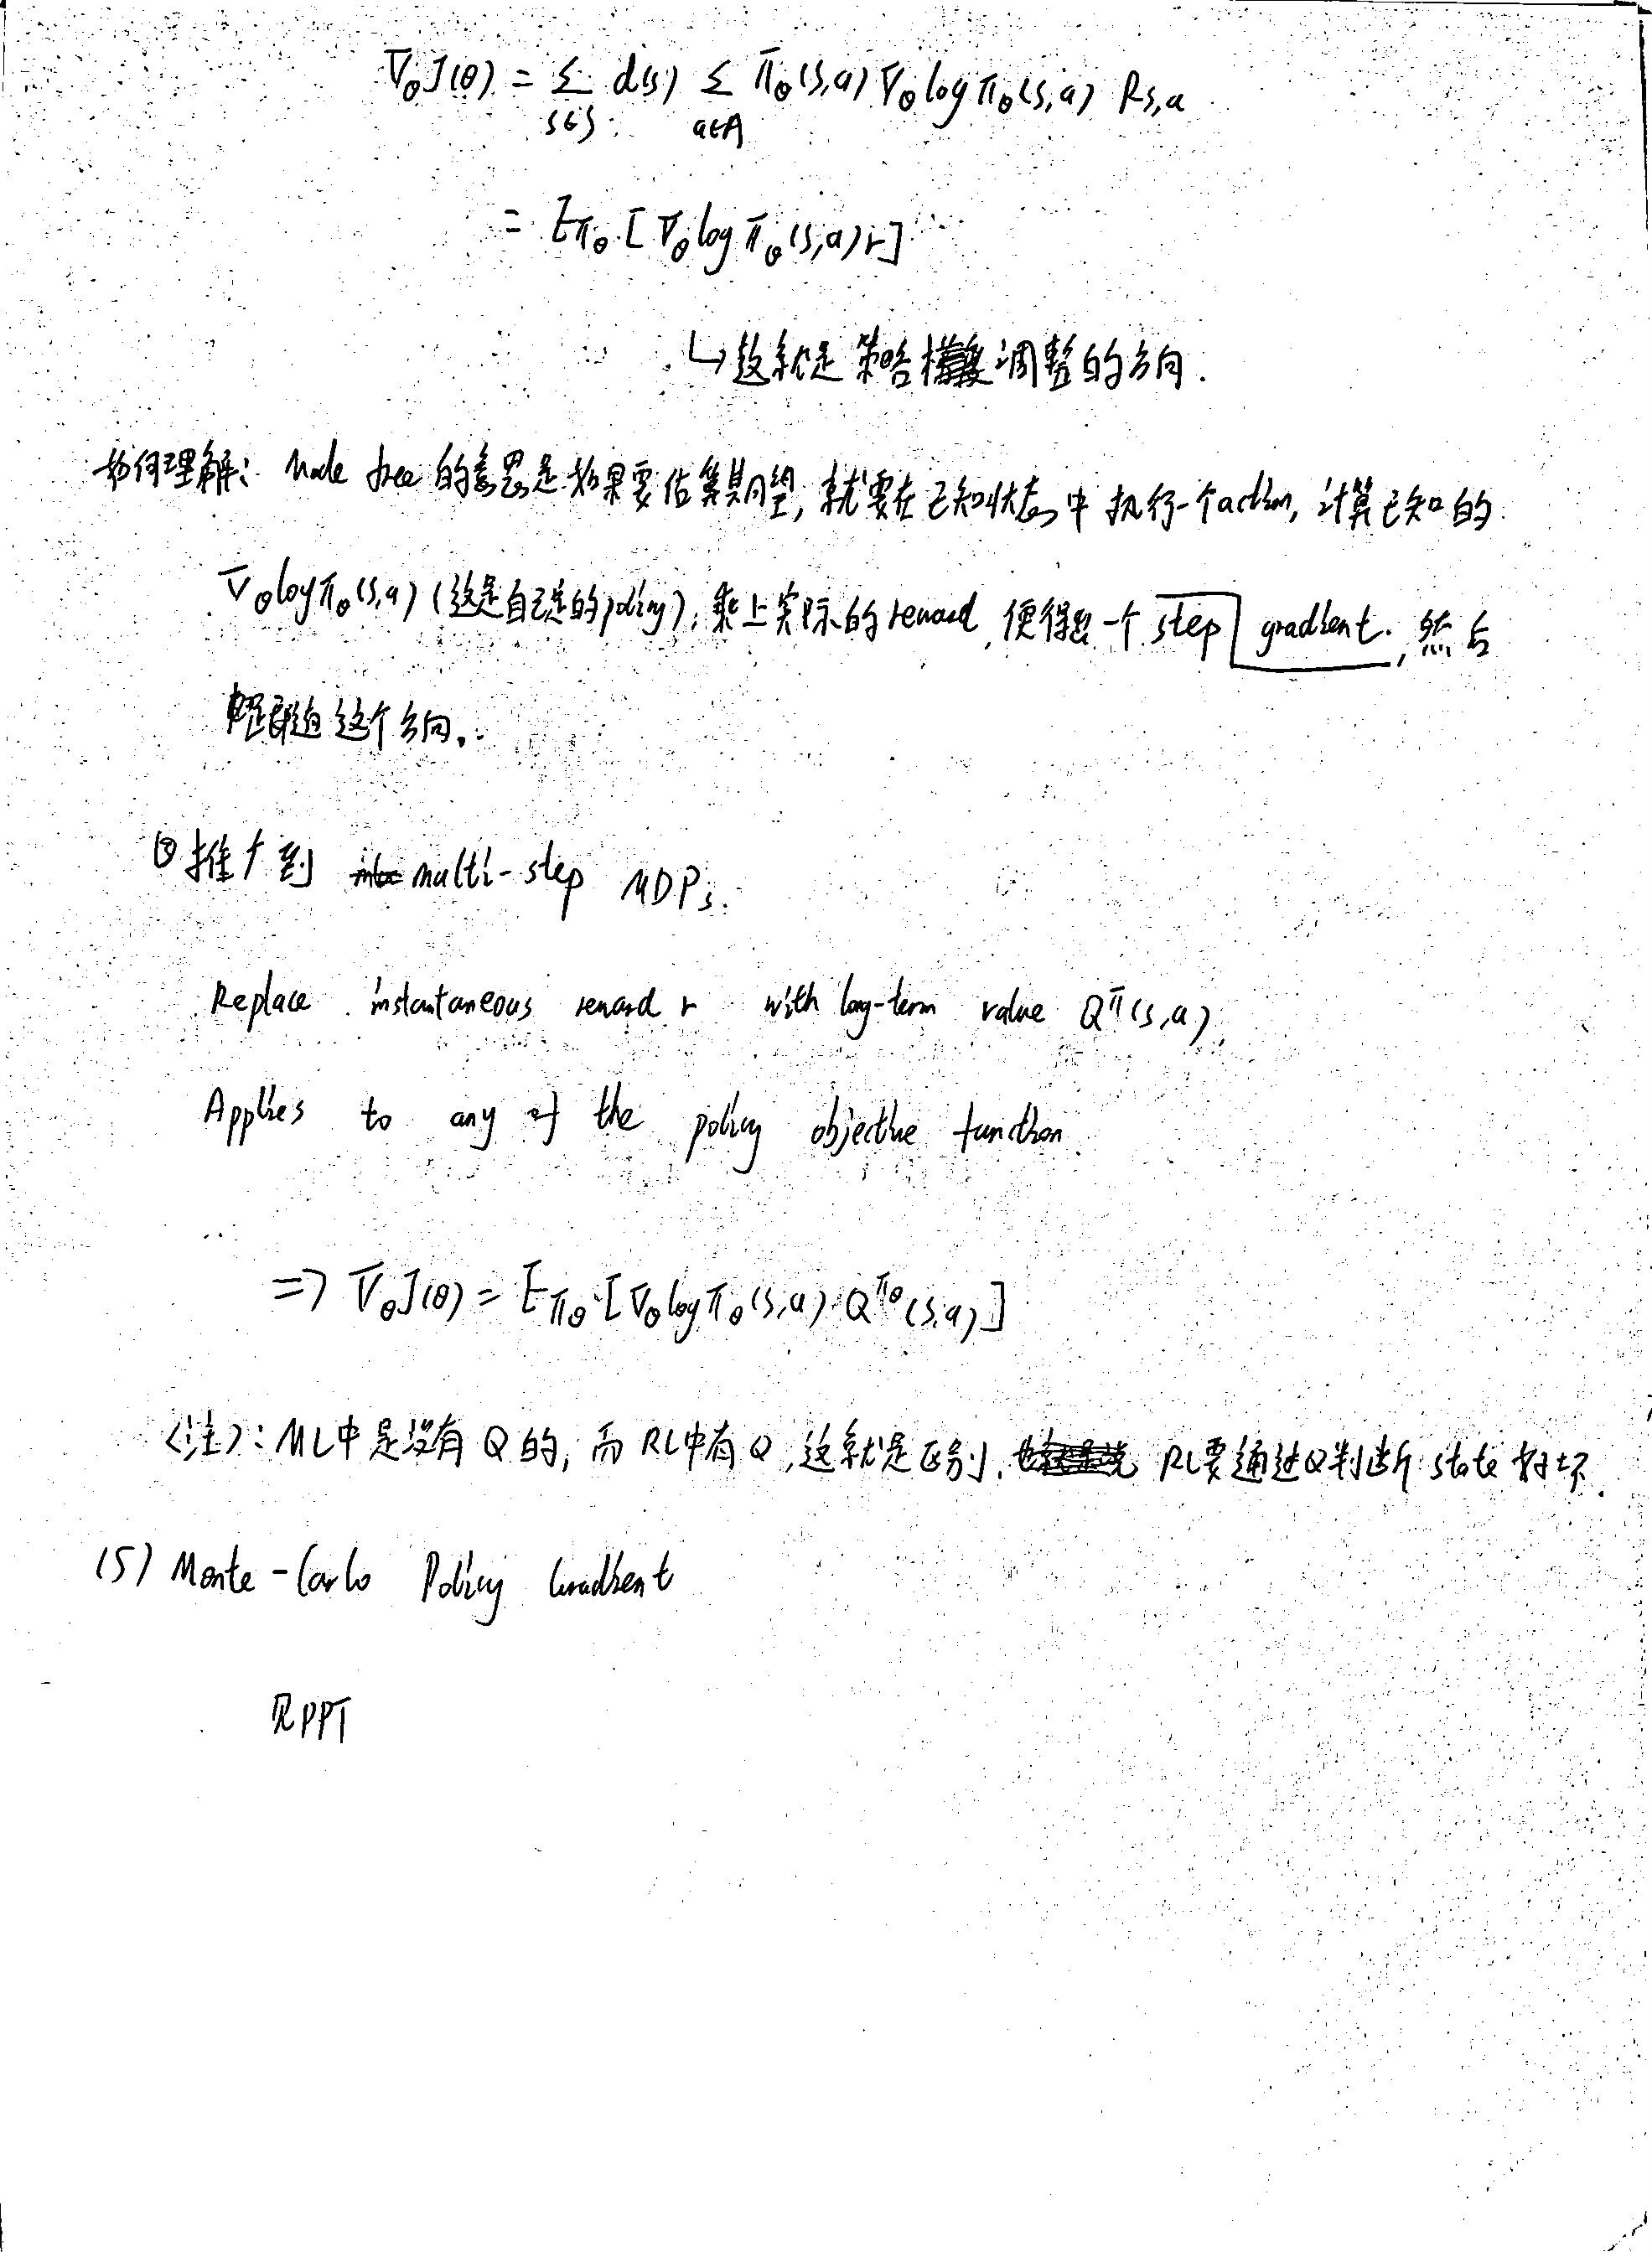 ∇θJ(θ) = Σ d(s) Σ πθ(s,a) ∇θlogπθ(s,a) Rs,a
s∈S a∈A
= Eπθ[∇θlogπθ(s,a)r]
↳这就是策略 调整的方向.
如何理解: Mode free 的意思是如果要估算期望, 就要在已知状态中执行一个action, 计算已知的
∇θlogπθ(s,a) (这是自己定的policy), 乘上实际的reward, 便得出一个 step gradient. 然后
跟随这个方向.
推广到 multi-step MDPs.
Replace instantaneous reward r with long-term value Qπ(s,a)
Applies to any of the policy objective function
=> ∇θJ(θ) = Eπθ[∇θlogπθ(s,a) Qπθ(s,a)]
<注>: ML中是没有Q的, 而RL中有Q, 这就是区别. RL要通过Q判断 state 好坏.
(5) Monte-Carlo Policy Gradient
见PPT